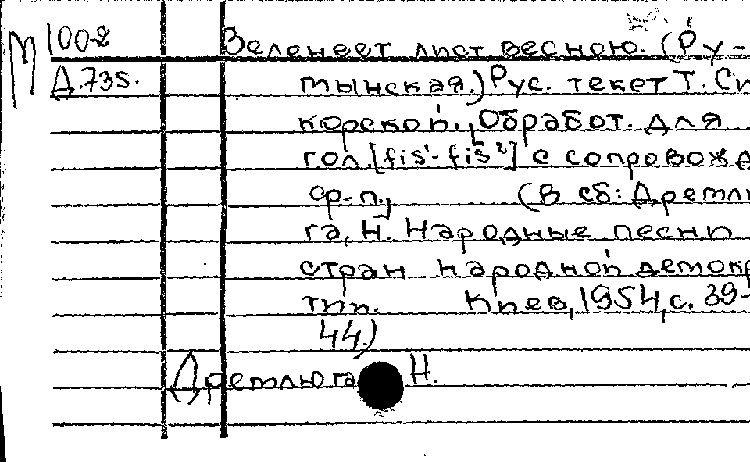 М 100-2 Зеленеет лист весною. (Ру-
Д.735. мынская.) Рус. текст Т. Си
корской., Обработ. для
гол [fis¹-fis²] с сопровожд
ф-п., (В сб: Дремлю
га, Н. Народные песни
стран народной демокр
тии. Киев, 1954, с. 39-
44.)
Дремлюга Н.